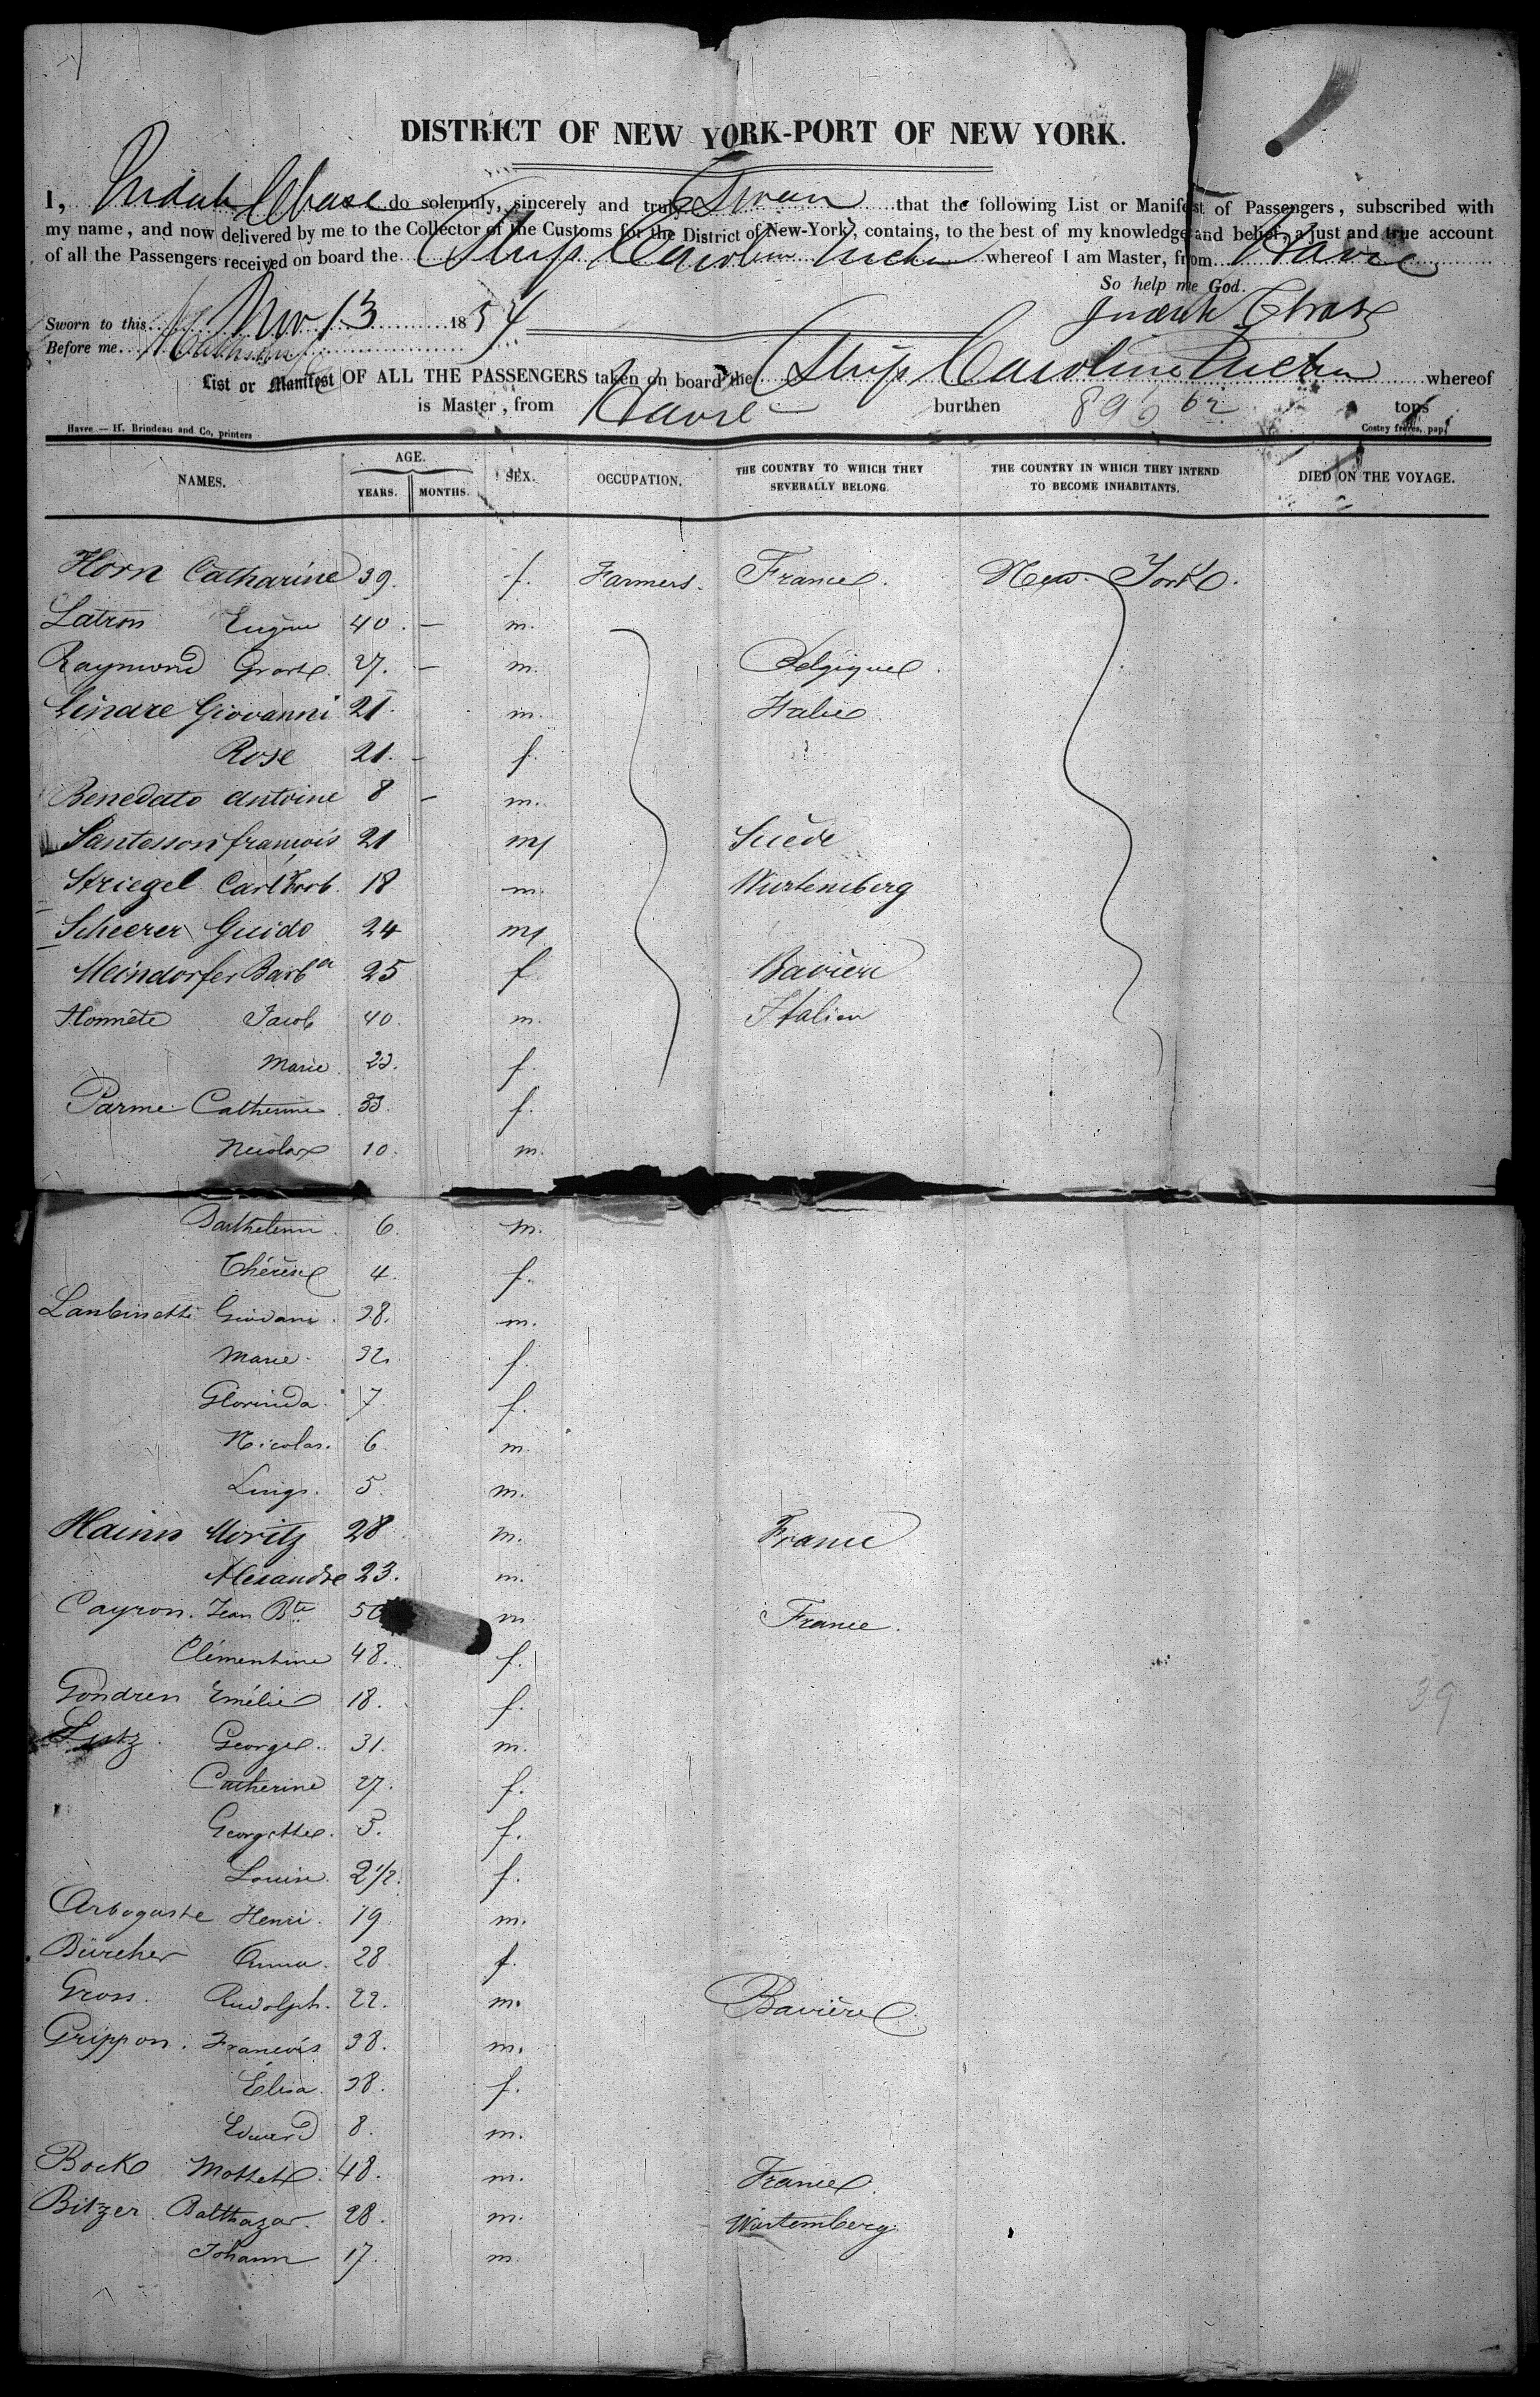 DISTRICT OF NEW YORK-PORT OF NEW YORK.
I, Judah Chase do solemnly, sincerely and truly Swear that the following List or Manifest of Passengers, subscribed with
my name, and now delivered by me to the Collector of the Customs for the District of New-York, contains, to the best of my knowledge and belief, a just and true account
of all the Passengers received on board the Ship Caroline whereof I am Master, from Havre
So help me God.
Sworn to this Nov 13 1854 Judah Chase
Before me
List or Manifest OF ALL THE PASSENGERS taken on board the Ship Caroline whereof
is Master, from Havre burthen 896 62 tons
Havre — H. Brindeau and Co, printers Costey frères, pap.
NAMES. AGE. YEARS. MONTHS. SEX. OCCUPATION. THE COUNTRY TO WHICH THEY SEVERALLY BELONG. THE COUNTRY IN WHICH THEY INTEND TO BECOME INHABITANTS. DIED ON THE VOYAGE.
Horn Catharine 39. f. Farmers. France. New-York.
Latron Eugène 40. — m.
Raymond 27. — m. Belgique
Giovanni 21. m. Italie
Rose 21. — f.
Benedato Antoine 8 — m.
Santesson francois 21 m Suède
Striegel Carl 18 m. Wurtemberg
Scheerer Guido 24 m
Meindorfer Barba 25 f Bavière
Honnete Jacob 40. m. Italien
Marie. 23. f.
Parme Catherine. 33. f.
Nicolas 10. m.
Barthelemi. 6. m.
Thérèse 4. f.
Lanbinetti Giovani. 38. m.
Marie. 32. f.
Glorinda. 7. f.
Nicolas. 6. m.
Luigi. 5. m.
Hainn Moritz 28 m. France
Alexandre 23. m.
Cayron. Jean Bte 50 m France.
Clémentine 48. f.
Gondren Emélie 18. f.
Lutz. George. 31. m.
Catherine 27. f.
Georgette. 5. f.
Louise. 2 1/2. f.
Arbogaste Henri. 19. m.
Bürcher Anna. 28 f.
Gross. Rudolph. 22. m. Bavière
Grippon. Francois 38. m.
Élisa. 38. f.
Edward 8. m.
Bock 48. m. France.
Bitzer. Balthazar. 28. m. Wurtemberg.
Johann 17. m.
39